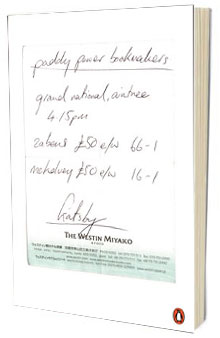 paddy power bookmakers
grand national, aintree
4.15pm
zabenz £50 e/w 66-1
mckelvey £50 e/w 16-1
Gatsby
THE WESTIN MIYAKO
KYOTO